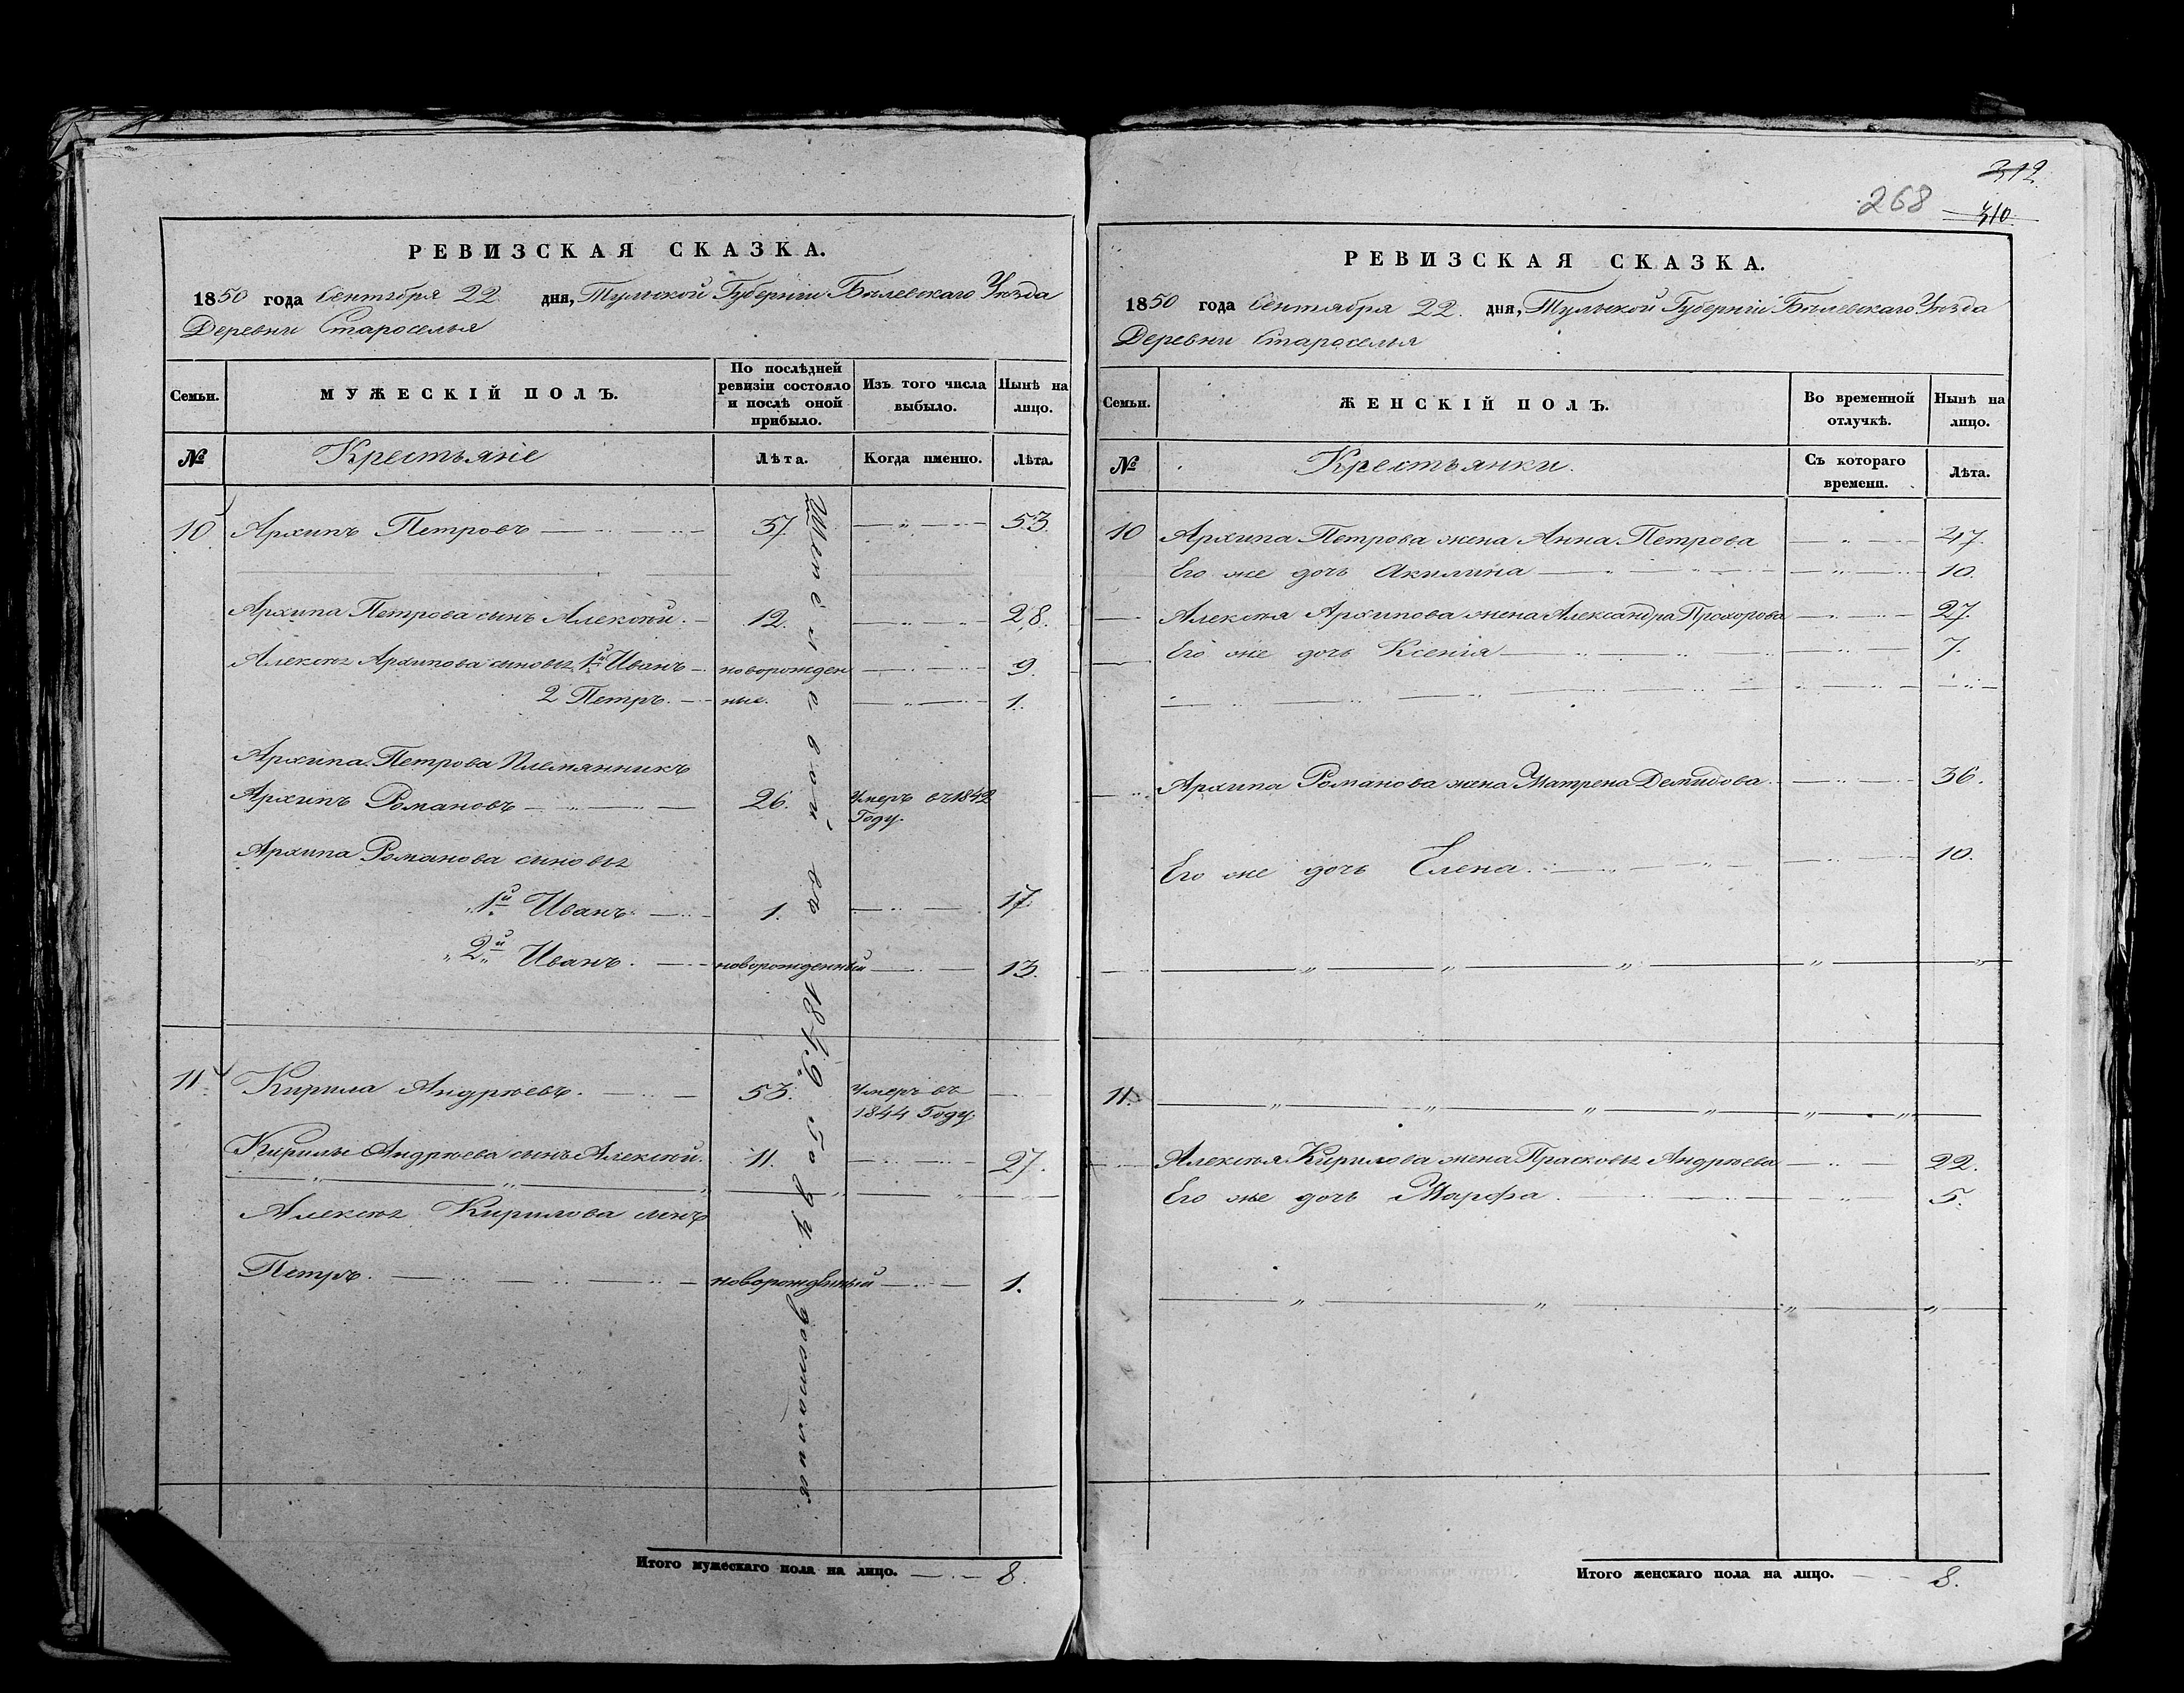 312.
268
310.
РЕВИЗСКАЯ СКАЗКА.
1850 года Сентября 22 дня, Тульской Губерніи Бѣлевскаго Уѣзда
Деревни Староселья
Семьи. МУЖЕСКІЙ ПОЛЪ. По послѣдней ревизіи состояло и послѣ оной прибыло. Изъ того числа выбыло. Нынѣ на лицо.
№ Крестьяне Лѣта. Когда именно. Лѣта.
10 Архипъ Петровъ 37. 53.
Архипа Петрова сынъ Алексѣй. 12. 28.
Алексѣя Архипова сыновья 1й Иванъ новорожден 9.
2 Петръ. ные. 1.
Архипа Петрова Племянникъ
Архипъ Романовъ 26. Умеръ въ 1842
Году.
Архипа Романова сыновья
1й Иванъ 1. 17.
2й Иванъ. новорожденный 13.
11. Кирила Андрѣевъ. 53. Умеръ въ
1844 Году.
Кирилы Андрѣева сынъ Алексѣй. 11. 27.
Алексѣя Кирилова сынъ
Петръ. новорожденный 1.
въ 1849 Году. достались.
Итого мужескаго пола на лицо. 8.
РЕВИЗСКАЯ СКАЗКА.
1850 года Сентября 22. дня, Тульской Губерніи Бѣлевскаго Уѣзда
Деревни Староселья
Семьи. ЖЕНСКІЙ ПОЛЪ. Во временной отлучкѣ. Нынѣ на лицо.
№ Крестьянки. Съ котораго времени. Лѣта.
10 Архипа Петрова жена Анна Петрова 47.
Его же дочь Акилина 10.
Алексѣя Архипова жена Александра Прохорова 27.
Его же дочь Ксенія 7.
Архипа Романова жена Матрена Демидова. 36.
Его же дочь Елена. 10.
11.
Алексѣя Кирилова жена Прасковья Андрѣева 22.
Его же дочь Марфа. 5.
Итого женскаго пола на лицо. 8.